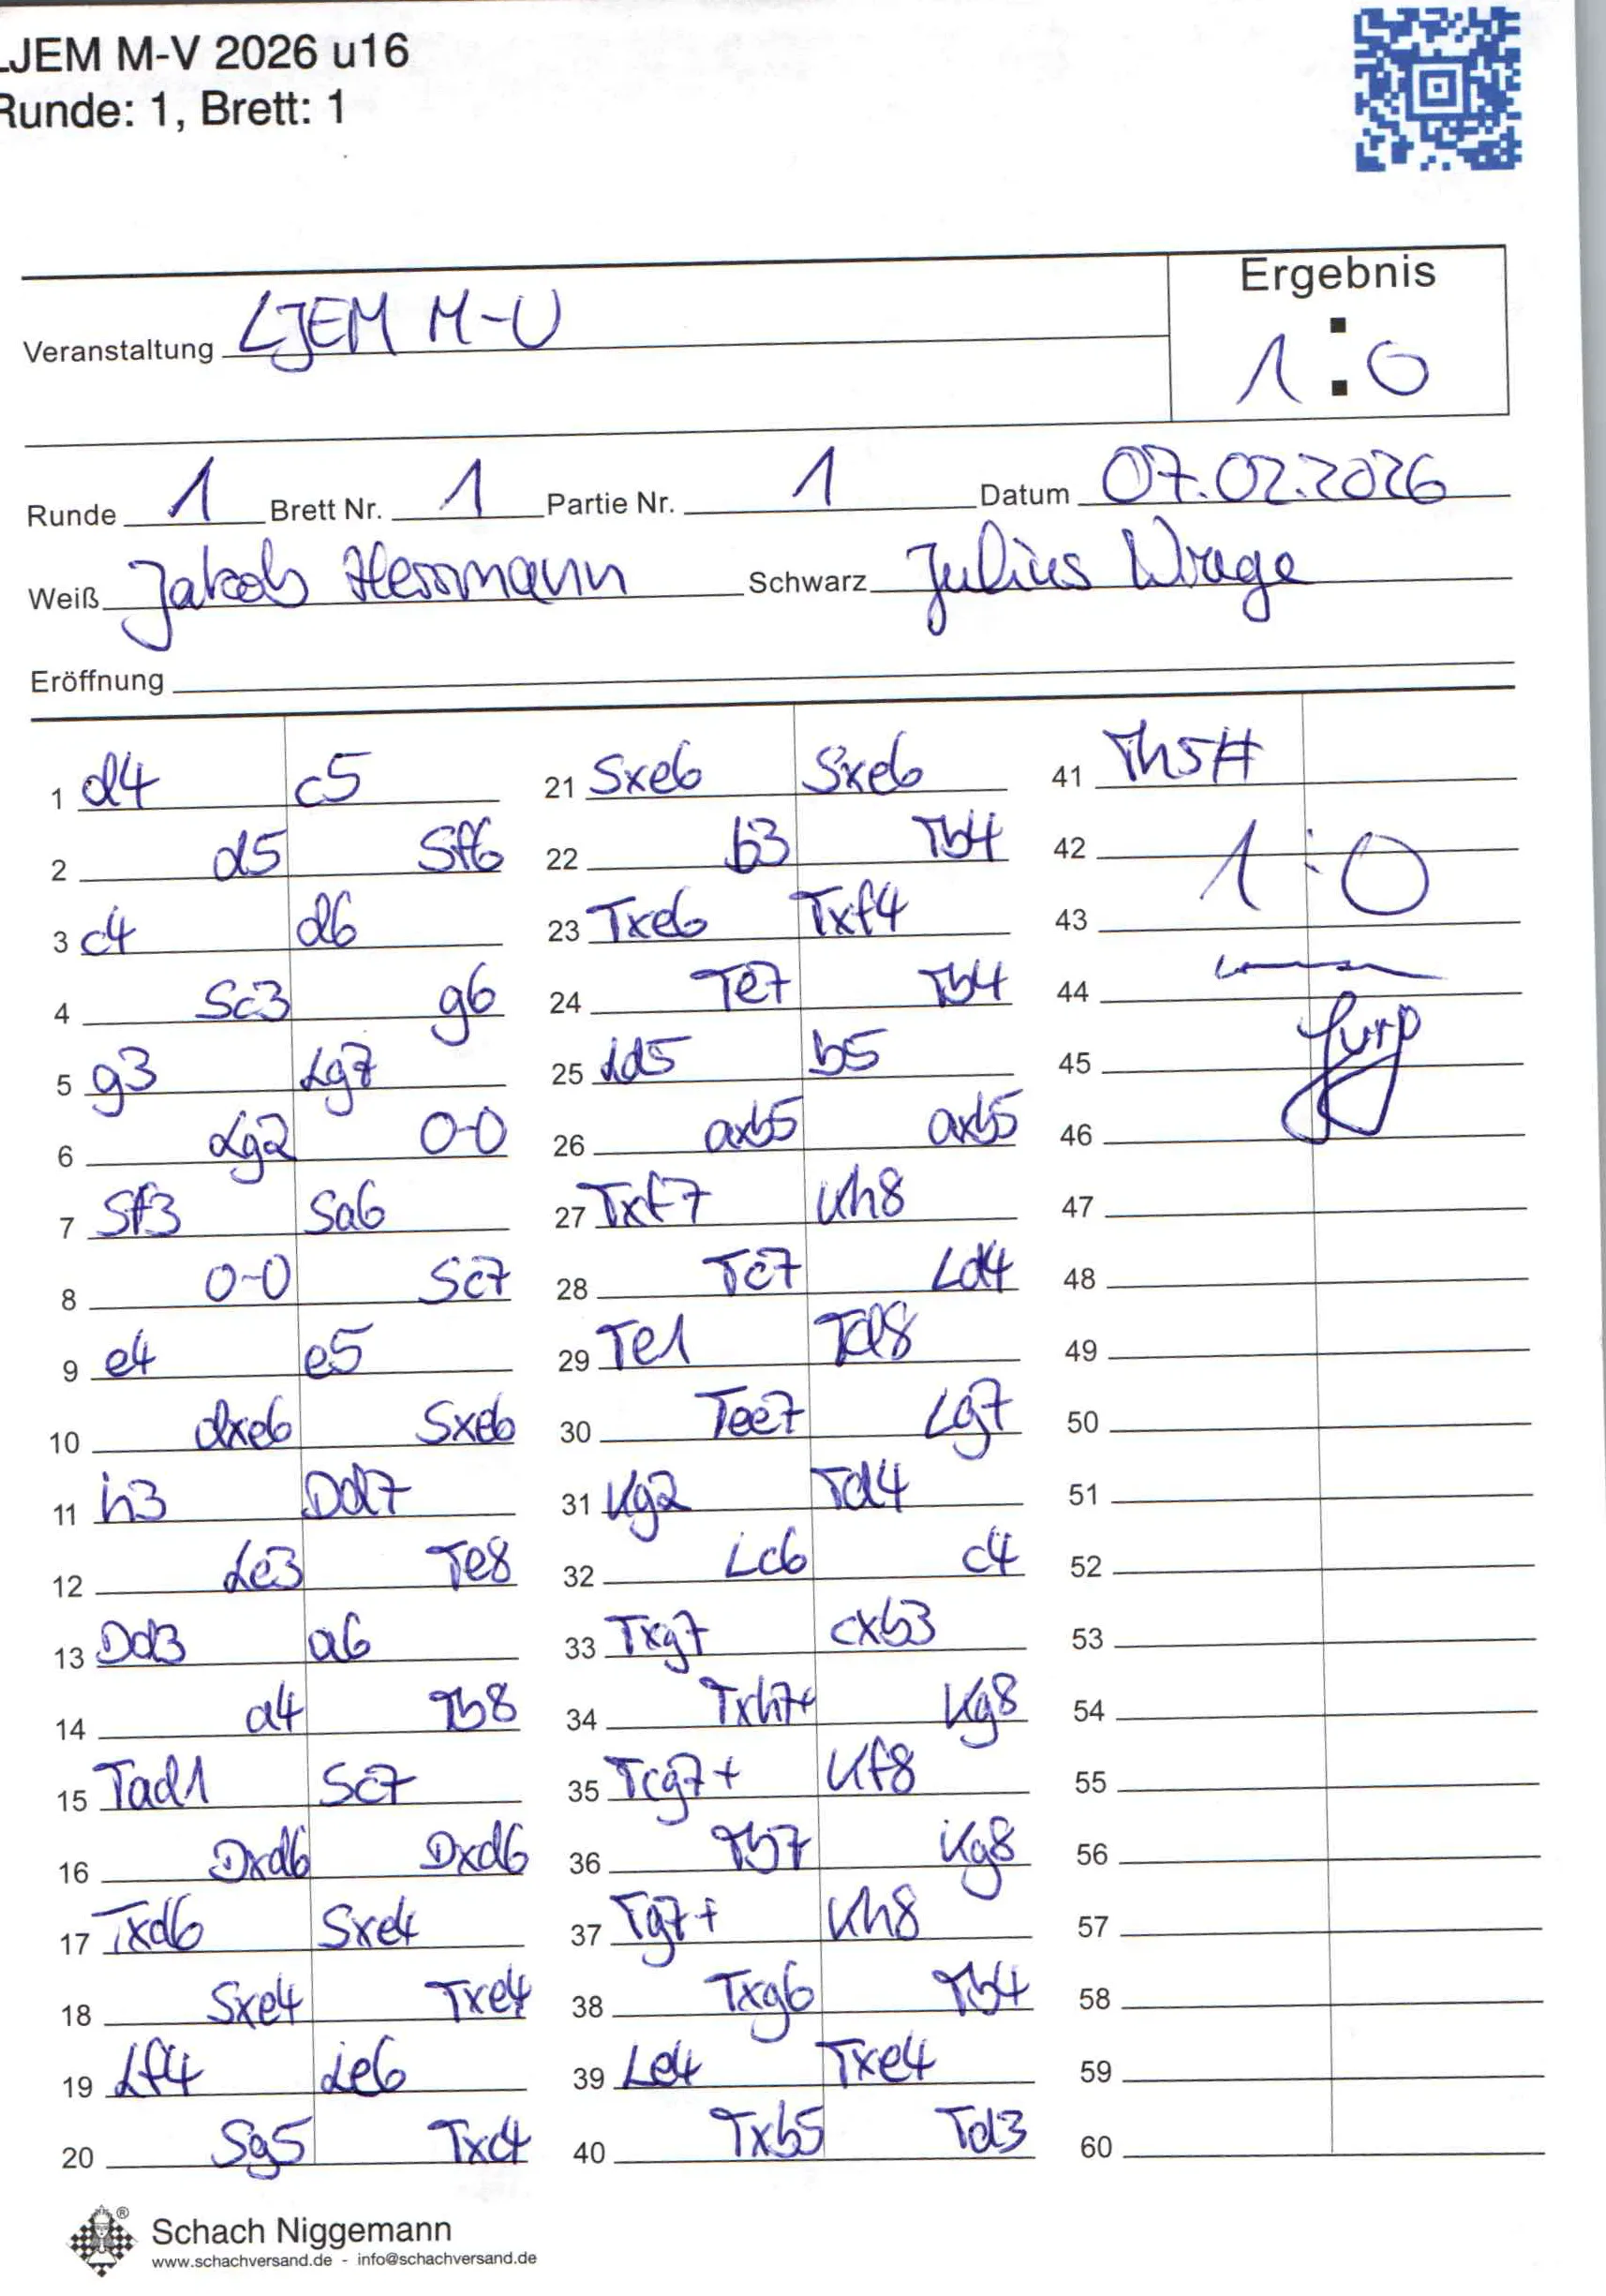 LJEM M-V 2026 u16
Runde: 1, Brett: 1
Ergebnis
Veranstaltung LJEM M-V
1:0
Runde 1 Brett Nr. 1 Partie Nr. 1 Datum 07.02.2026
Weiß Jakob Herrmann Schwarz Julius Wrage
Eröffnung
1 d4 c5
2 d5 Sf6
3 c4 d6
4 Sc3 g6
5 g3 Lg7
6 Lg2 0-0
7 Sf3 Sa6
8 0-0 Sc7
9 e4 e5
10 dxe6 Sxe6
11 h3 Dd7
12 Le3 Te8
13 Dd3 a6
14 a4 Tb8
15 Tad1 Sc7
16 Dxd6 Dxd6
17 Txd6 Sxe4
18 Sxe4 Txe4
19 Lf4 Le6
20 Sg5 Txc4
21 Sxe6 Sxe6
22 b3 Tb4
23 Txe6 Txf4
24 Te7 Tb4
25 Ld5 b5
26 axb5 axb5
27 Txf7 Kh8
28 Tc7 Ld4
29 Te1 Td8
30 Tee7 Lg7
31 Kg2 Td4
32 Lc6 c4
33 Txg7 cxb3
34 Txh7+ Kg8
35 Tcg7+ Kf8
36 Tb7 Kg8
37 Tg7+ Kh8
38 Txg6 Tb4
39 Le4 Txe4
40 Txb5 Td3
41 Th5#
42 1:0
43
44
45
46
47
48
49
50
51
52
53
54
55
56
57
58
59
60
Schach Niggemann
www.schachversand.de - info@schachversand.de